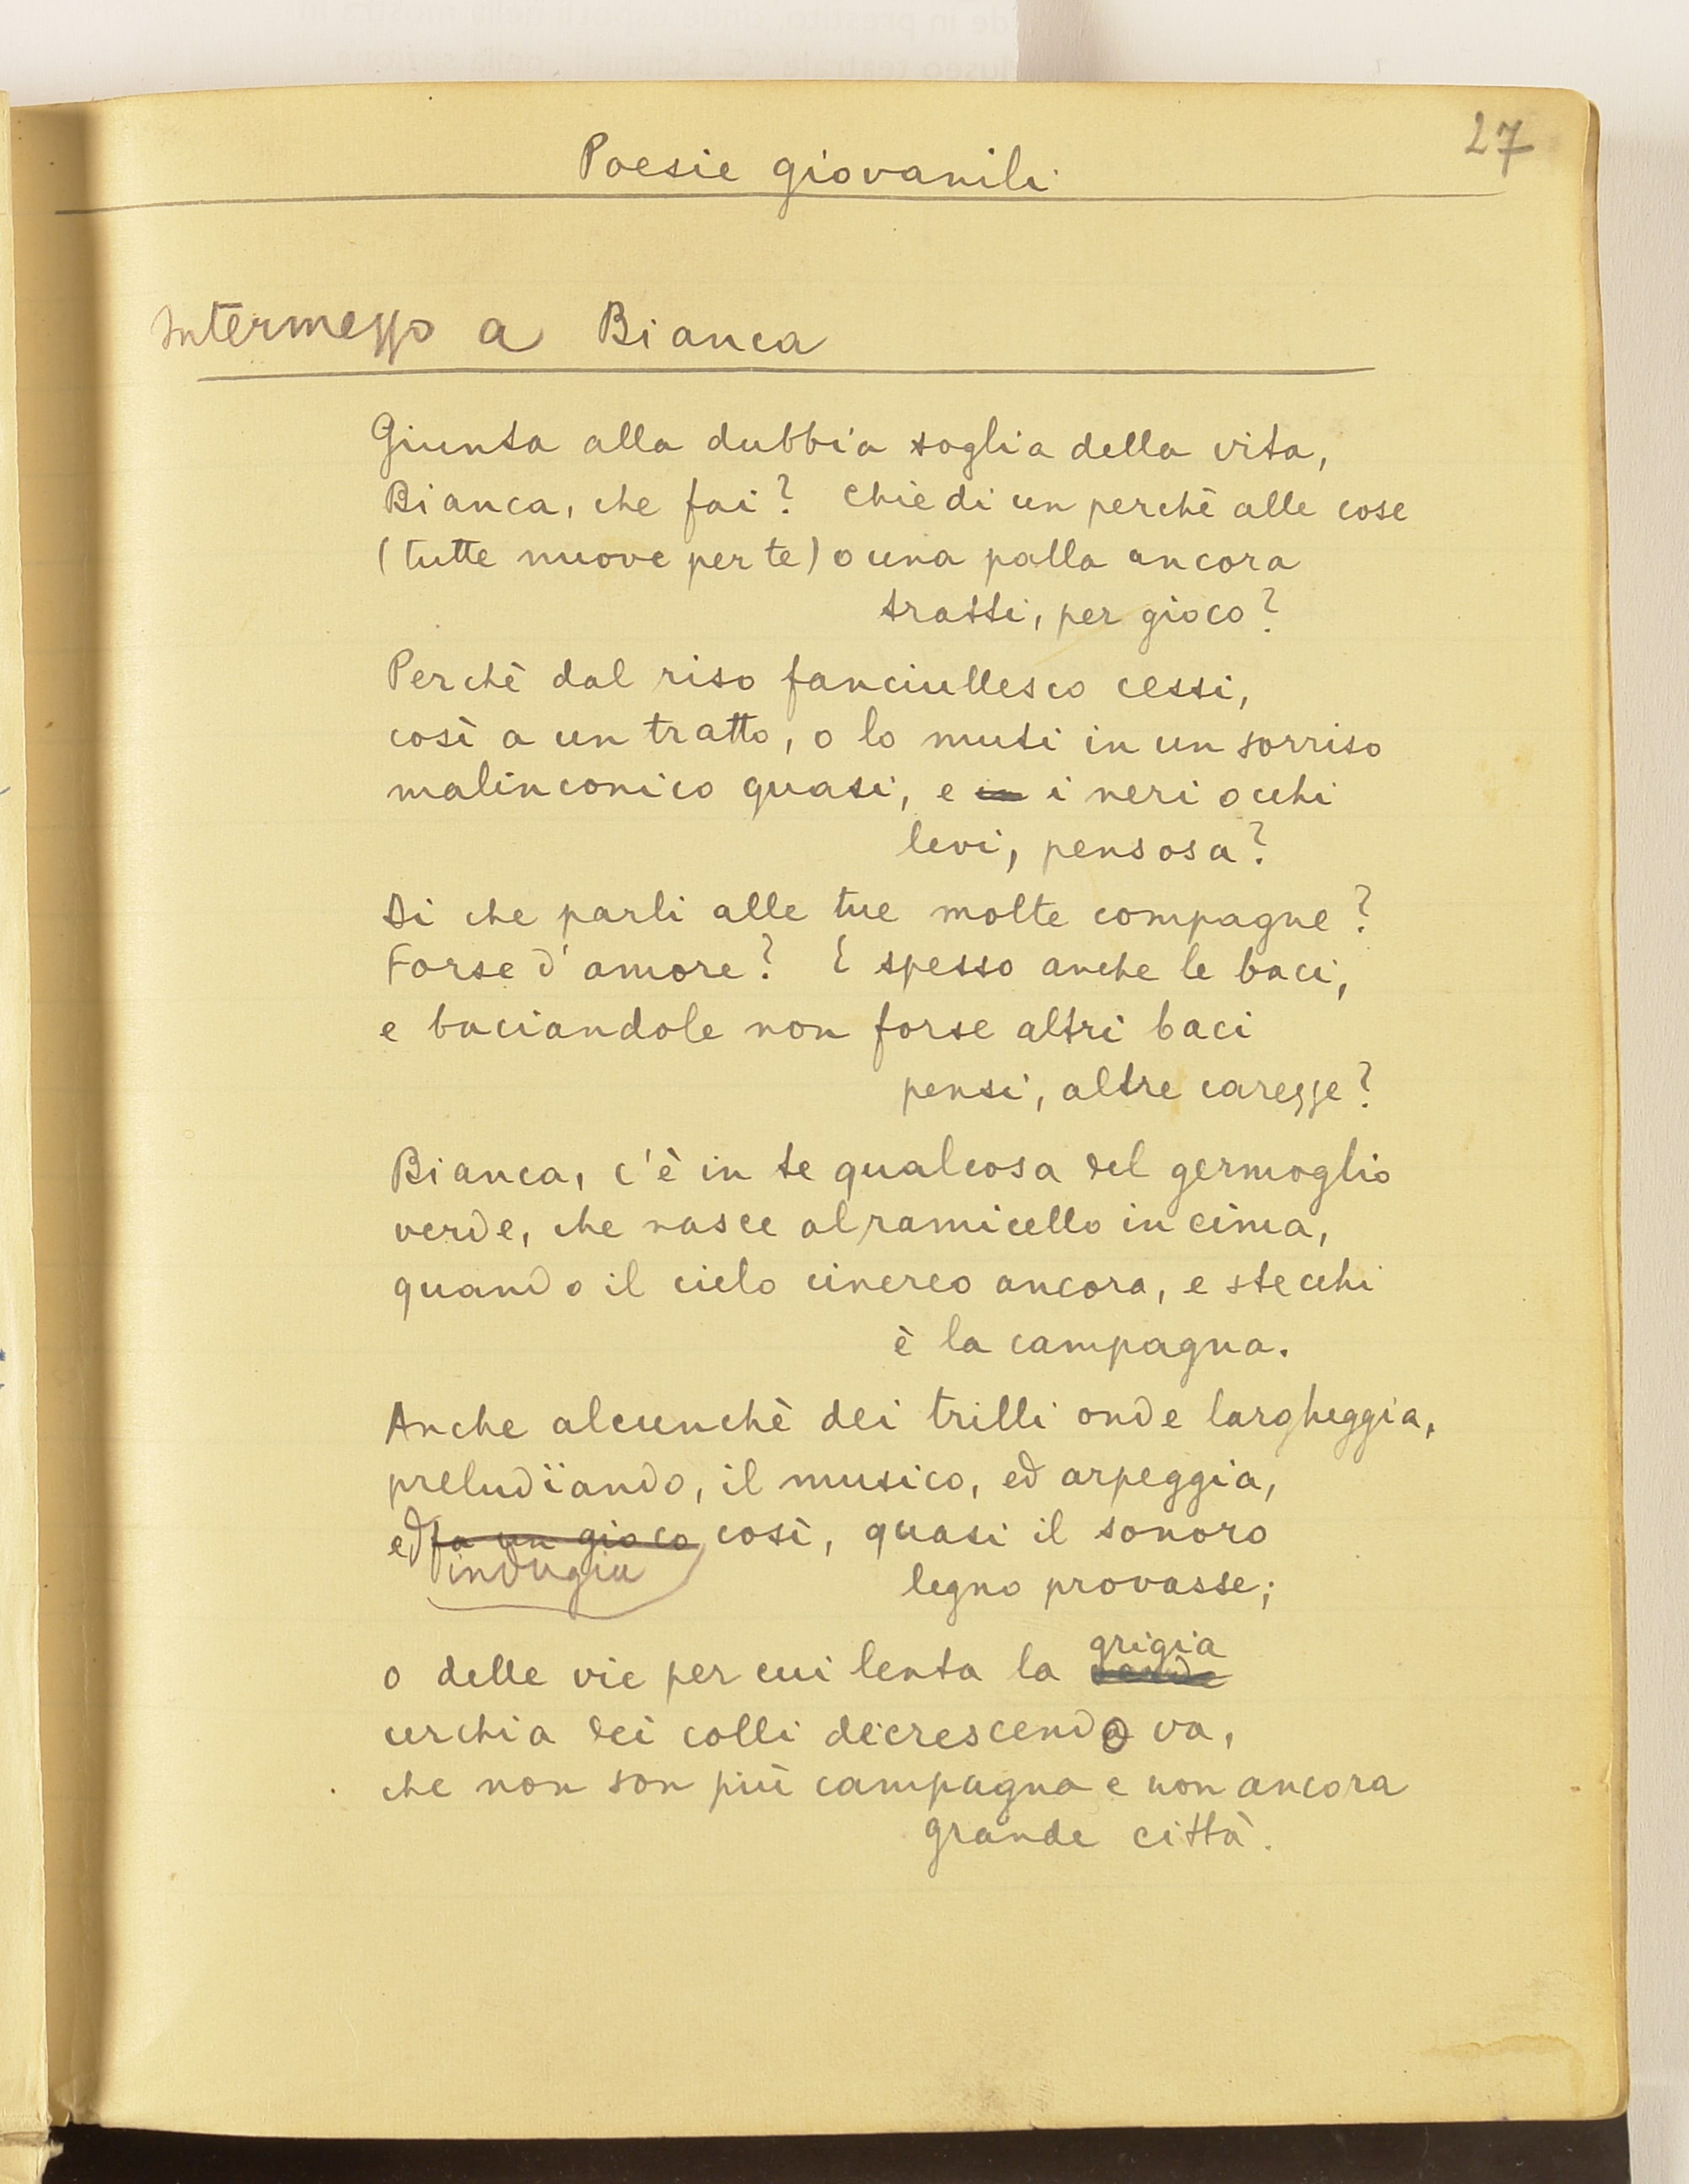 27
Poesie giovanili
Intermezzo a Bianca
Giunta alla dubbia soglia della vita,
Bianca, che fai? Chiedi un perchè alle cose
(tutte nuove per te) o una palla ancora
tratti, per gioco?
Perchè dal riso fanciullesco cessi,
così a un tratto, o lo muti in un sorriso
malinconico quasi, e in i neri occhi
levi, pensosa?
Di che parli alle tue molte compagne?
Forse d'amore? E spesso anche le baci,
e baciandole non forse altri baci
pensi, altre carezze?
Bianca, c'è in te qualcosa del germoglio
verde, che nasce al ramicello in cima,
quando il cielo cinereo ancora, e stecchi
è la campagna.
Anche alcunchè dei trilli onde largheggia,
preludïando, il musico, ed arpeggia,
ed fa un gioco così, quasi il sonoro
indugia
legno provasse;
grigia
o delle vie per cui lenta la verde
cerchia dei colli decrescendo va,
che non son più campagna e non ancora
grande città.